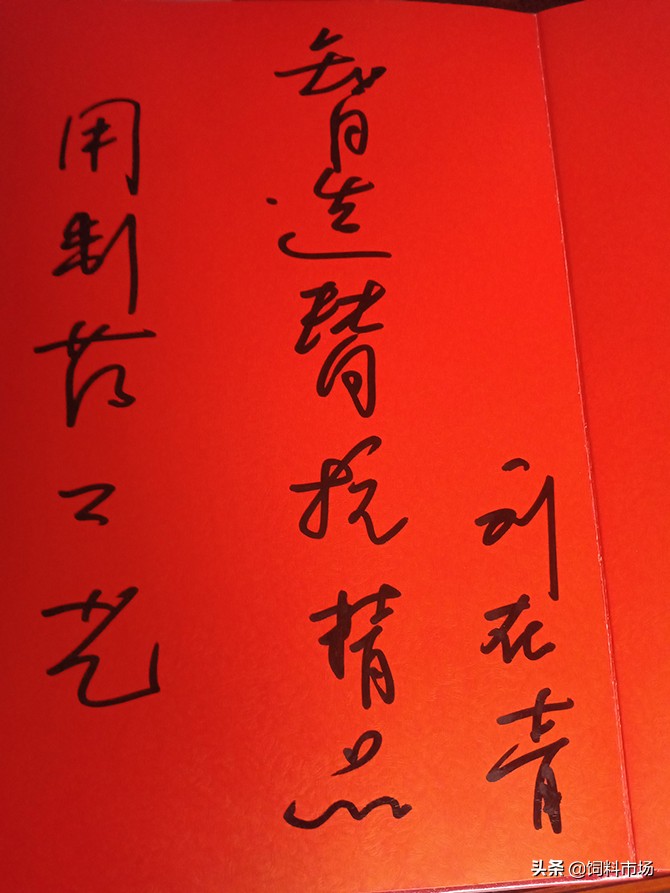 用制药工艺
智造替抗精品
刘在青
头条 @饲料市场